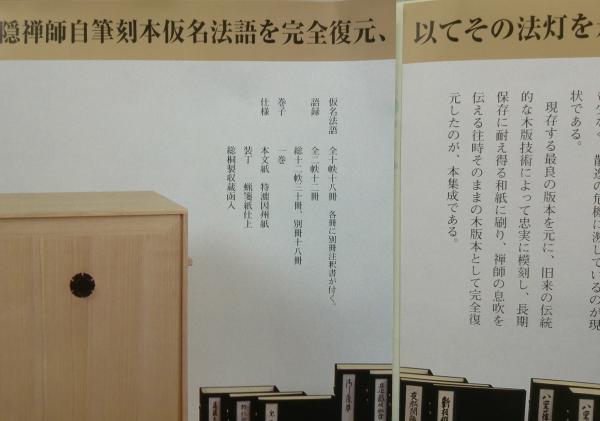 隠禅師自筆刻本仮名法語を完全復元、
以てその法灯を
仮名法語　全十帙十八冊　各冊に別冊注釈書が付く。
語録　全二帙十二冊
総十二帙三十冊、別冊十八冊
巻子　一巻
仕様　本文紙　特漉因州紙
装丁　蝋箋紙仕上
総桐製収蔵函入
散逸の危機に瀕しているのが現
状である。
現存する最良の版本を元に、旧来の伝統
的な木版技術によって忠実に模刻し、長期
保存に耐え得る和紙に刷り、禅師の息吹を
伝える往時そのままの木版本として完全復
元したのが、本集成である。